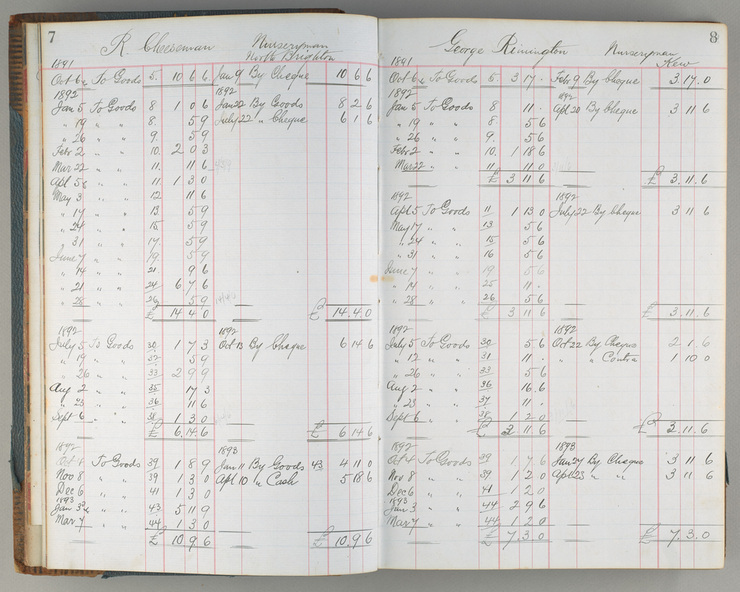 7 R. Cheeseman Nurseryman
North Brighton
1891
Oct 6 To Goods 5. 10 6 6 Jan 9 By Cheque 10 6 6
1892 1892
Jan 5 To Goods 8 1 0 6 Jan 22 By Goods 8 2 6
" 19 " " 8. 5 9 July 22 " Cheque 6 1 6
" 26 " " 9. 5 9
Feb 2 " " 10. 2 0 3
Mar 22 " " 11. 11 6
Apl 5 " " 11. 1 3 0
May 3 " " 12 11 6
" 17 " " 13 5 9
" 24 " " 15 5 9
" 31 " " 17 5 9
June 7 " " 19 5 9
" 14 " " 21 9 6
" 21 " " 24 6 7 6
" 28 " " 26 5 9
£ 14 4 0 £ 14. 4. 0
1892 1892
July 5 To Goods 30 1 7 3 Oct 13 By Cheque 6 14 6
" 19 " " 32 5 9
" 26 " " 33 2 9 9
Aug 2 " " 35 17 3
" 23 " " 36 11 6
Sept 6 " " 38 1 3 0
£ 6. 14. 6 £ 6. 14 6
1892 1893
Oct 4 To Goods 39 1 8 9 Jan 11 By Goods 43 4 11 0
Nov 8 " " 39 1 3 0 Apl 10 " Cash 5 18 6
Dec 6 " " 41 1 3 0
1893
Jan 3 " " 43 5 11 9
Mar 7 " " 44 1 3 0
£ 10. 9 6 £ 10. 9 6
George Rimington Nurseryman 8
Kew
1891
Oct 6 To Goods 5 3 17 - Feb 9 By Cheque 3. 17. 0
1892 1892
Jan 5 To Goods 8 11 - Apl 20 By Cheque 3 11 6
" 19 " " 8 5 6
" 26 " " 9. 5 6
Feb 2 " " 10. 1 8 6
Mar 22 " " 11 11 0
£ 3 11 6 £ 3. 11. 6
1892 1892
Apl 5 To Goods 11 1 13 0 July 22 By Cheque 3 11 6
May 17 " " 13 5 6
" 24 " " 15 5 6
" 31 " " 16 5 6
June 7 " " 19 5 6
" 14 " " 25 11 -
" 28 " " 26 5 6
£ 3 11 6 £ 3. 11. 6
1892 1892
July 5 To Goods 30 5 6 Oct 22 By Cheque 2 1 6
" 12 " " 31 11 - " " Contra 1 10 0
" 26 " " 33 5 6
Aug 2 " " 36 16. 6
" 23 " " 37 11 -
Sept 6 " " 38 1 2 0
£ 3. 11 6 £ 3. 11. 6
1892 1893
Oct 4 To Goods 39 1. 7 6 Jan 27 By Cheque 3 11 6
Nov 8 " " 39 1 2 0 Apl 25 " " 3 11 6
Dec 6 " " 41 1 2 0
1893
Jan 3 " " 44 2 9 6
Mar 7 " " 44 1 2 0
£ 7. 3. 0 £ 7. 3. 0